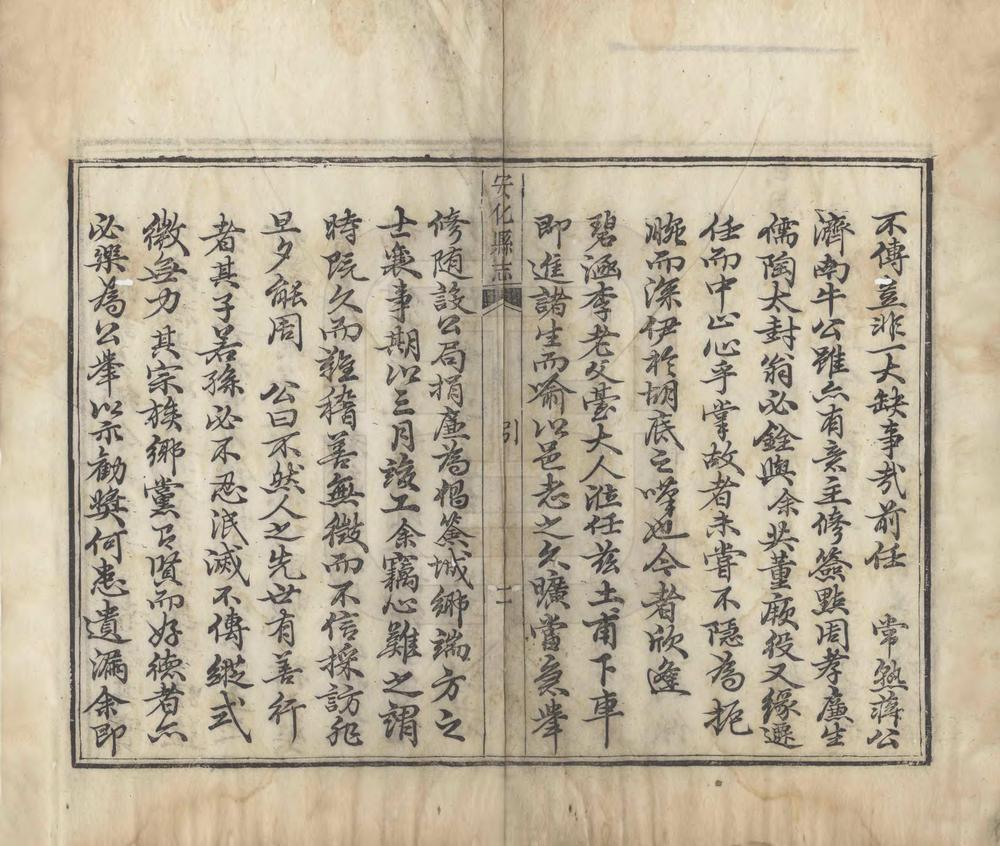 不傳豈非一大缺事哉前任 常熟蔣公
濟南牛公雖亦有意主修簽點周孝廉生
儒陶太封翁必銓與余共董厥役又緣遷
任而中止心乎掌故者未嘗不隱為扼
腕而深伊於胡底之嘆也今者欣逢
碧涵李老父臺大人涖任茲土甫下車
即進諸生而喻以邑志之久曠當急舉
安化縣志 引 二
修隨設公局捐廉為倡簽城鄉端方之
士襄事期以三月竣工余竊心難之謂
時既久而難稽善無徵而不信採訪非
旦夕能周 公曰不然人之先世有善行
者其子若孫必不忍泯滅不傳縱式
微無力其宗族鄉黨有賢而好德者亦
必樂為公舉以示勸獎何患遺漏余即